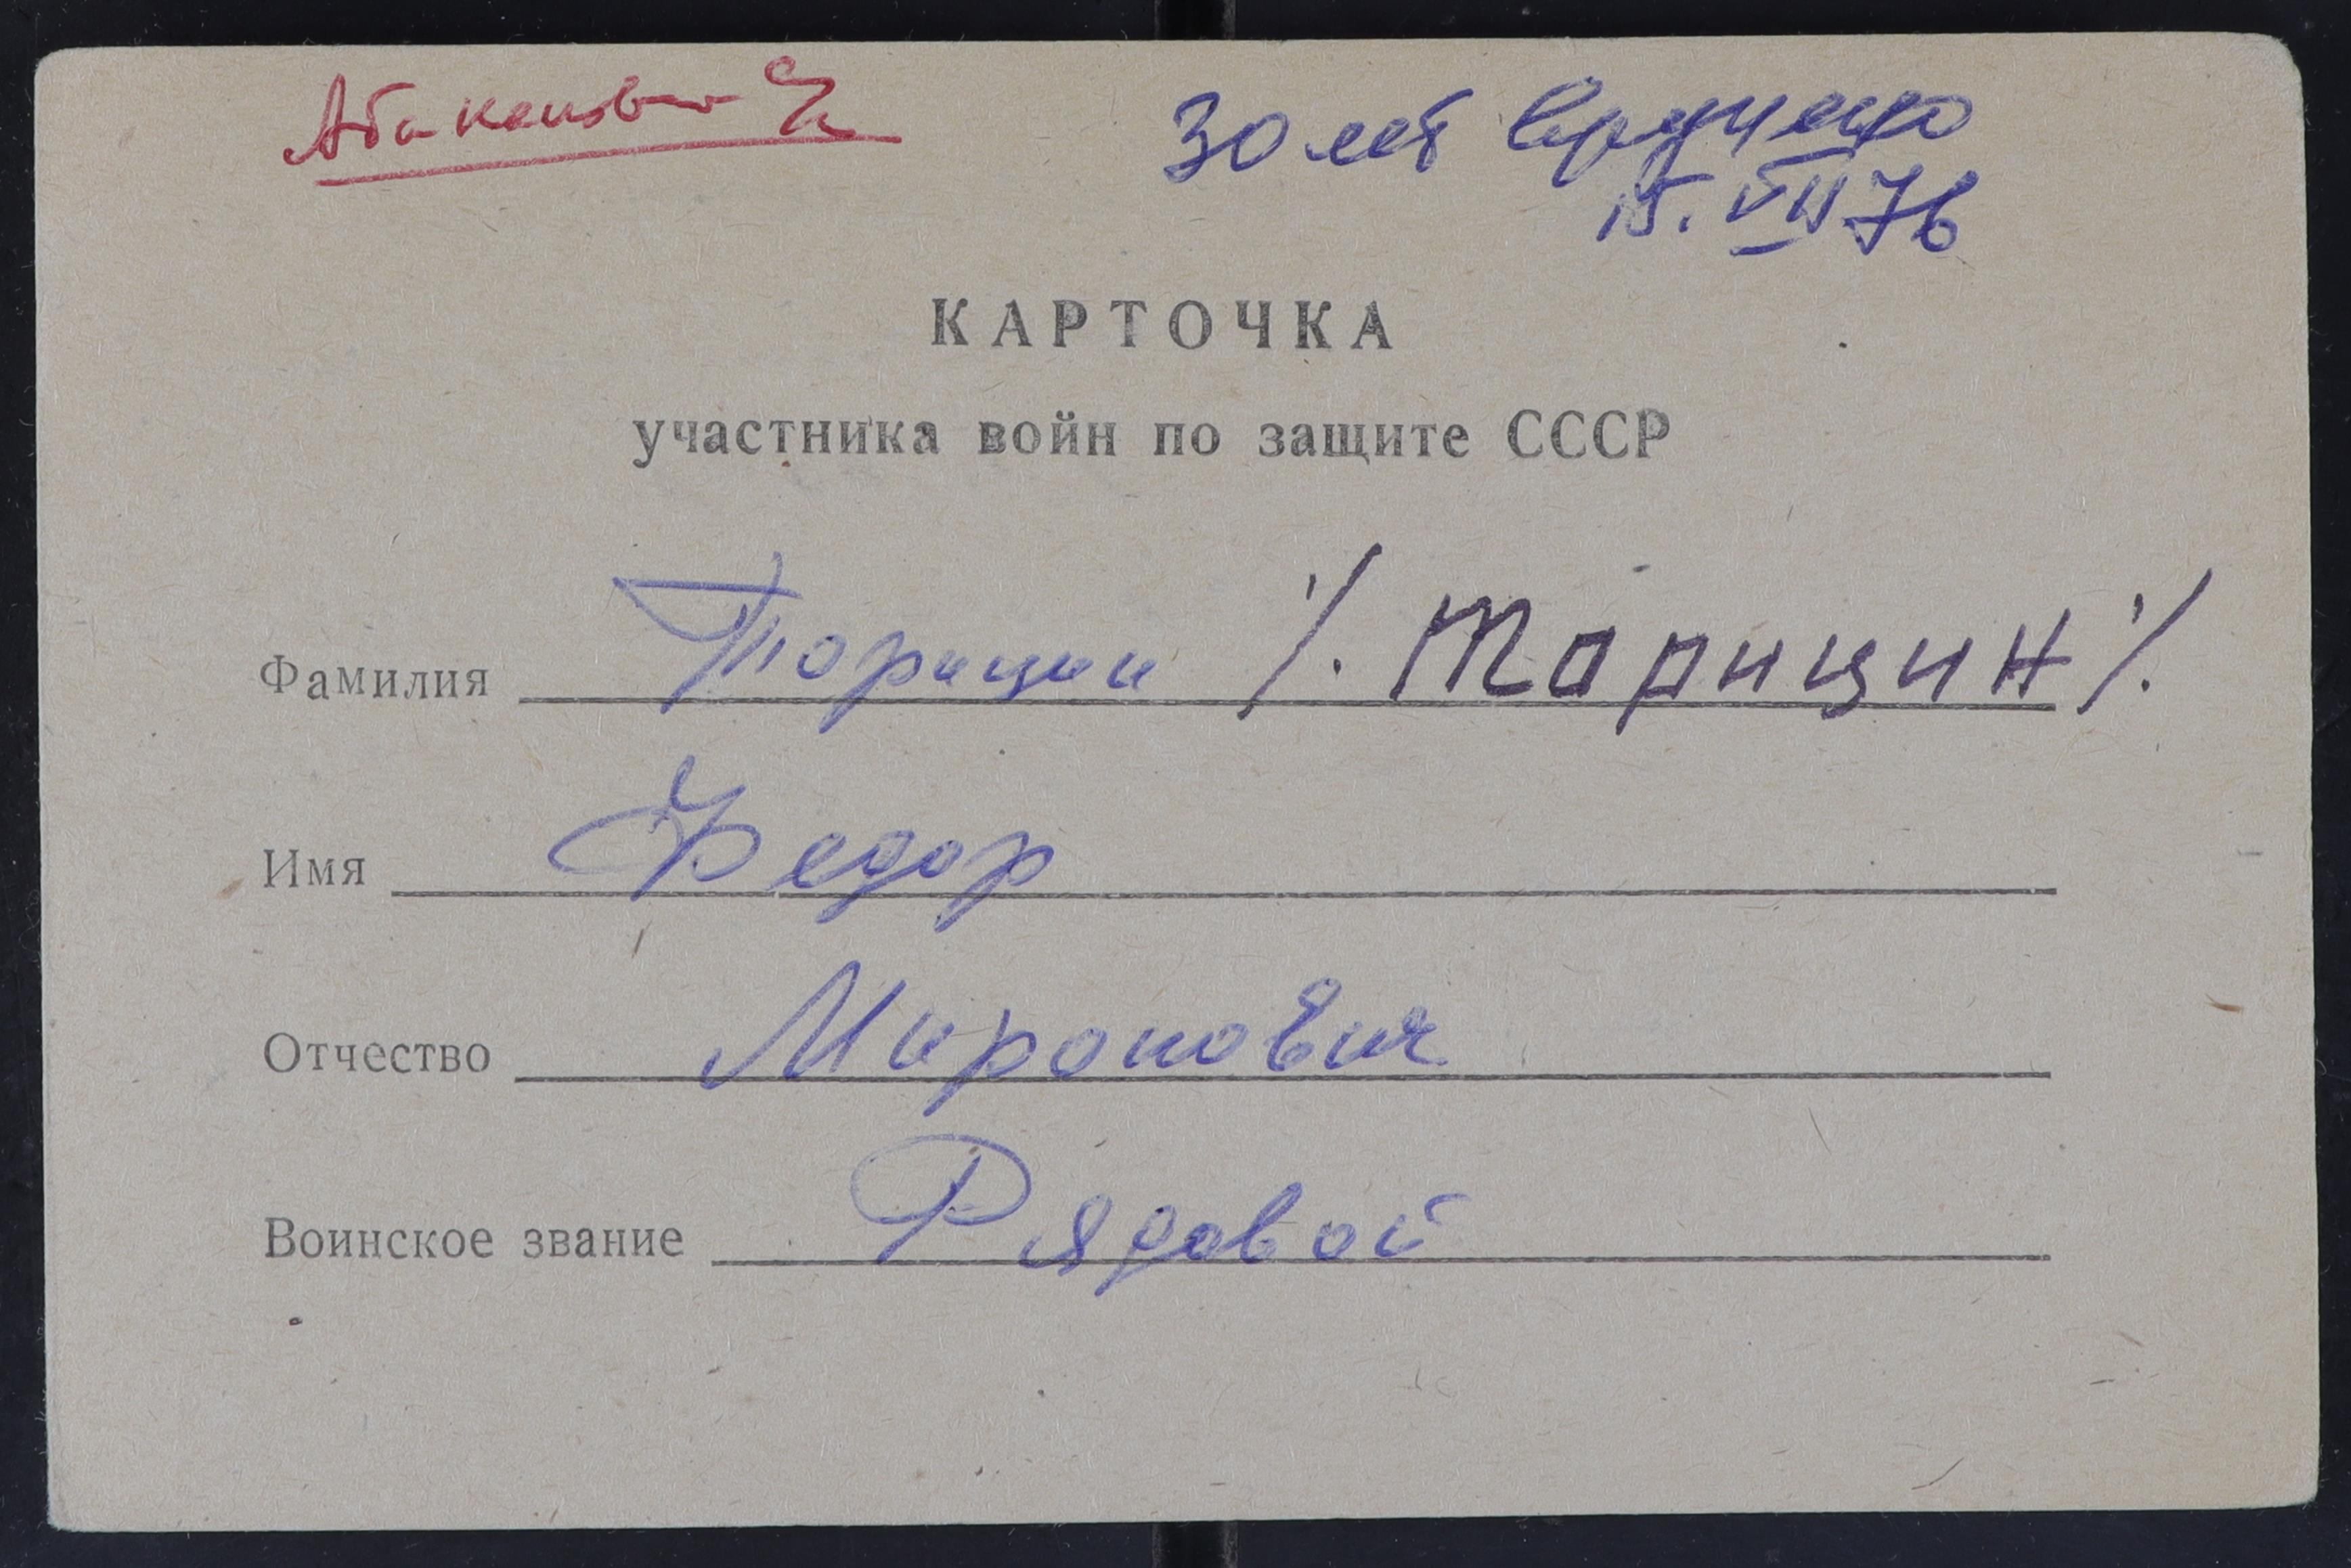 30 лет вручено
15. VII 76
КАРТОЧКА
участника войн по защите СССР
Фамилия Торицин /. Тарицин /.
Имя Федор
Отчество Миронович
Воинское звание Рядовой